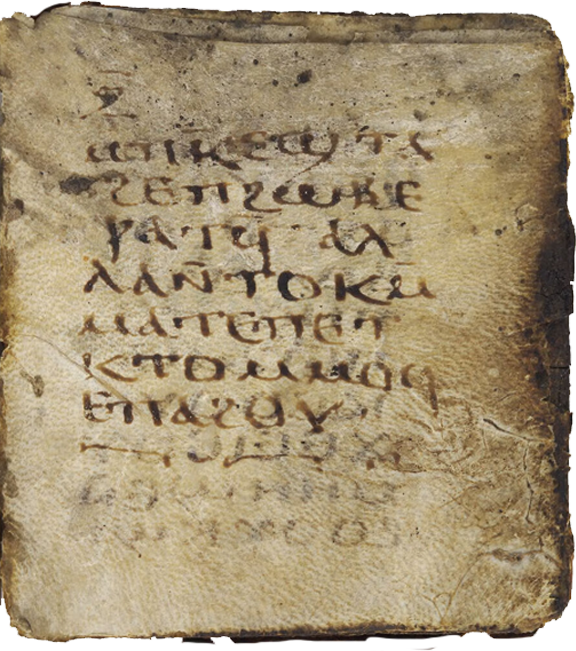 ⲝ̄
ⲱⲡⲕⲉϣⲧⲁ
ϩⲉⲡϩⲱⲃⲉ
ⲣⲁⲧϥ̄ ⲁⲗ
ⲗⲁⲛ̄ⲧⲟⲕⲙ
ⲙⲁⲧⲉⲡⲉⲧ
ⲕⲧⲟⲙⲙⲟϥ
ⲉⲡⲁϩⲟⲩ